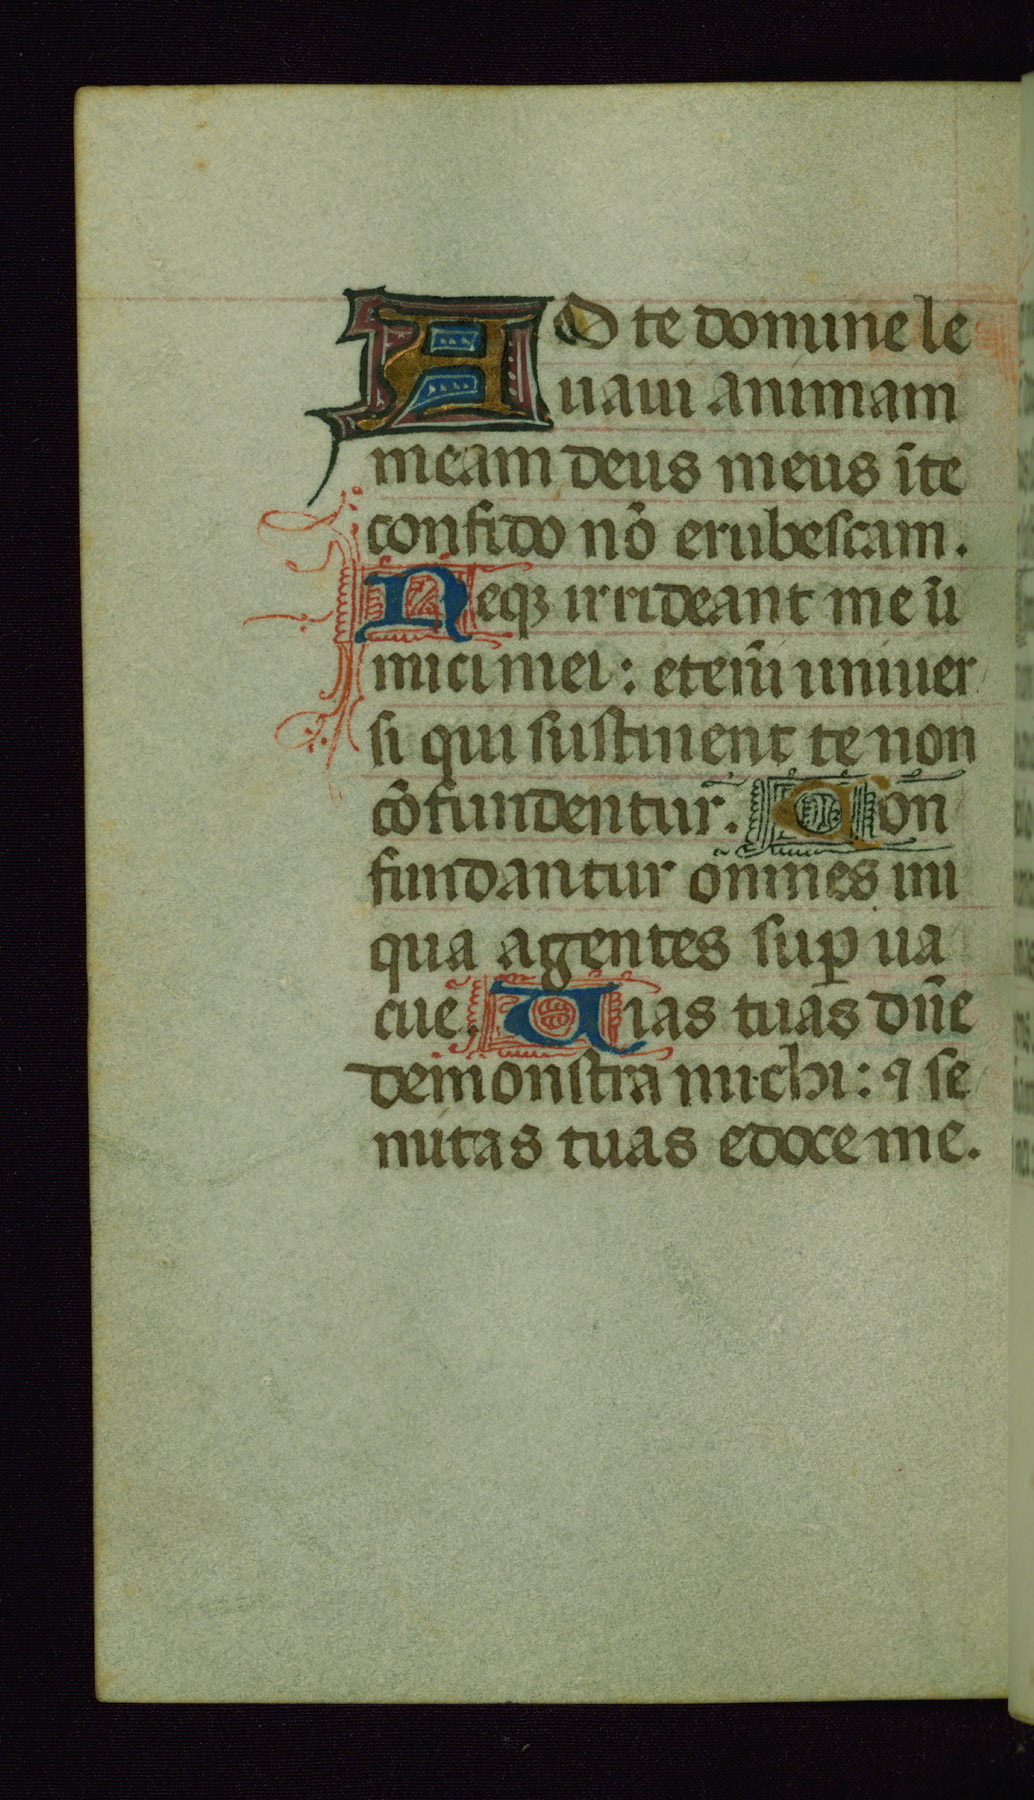 AD te domine le
uaui animam
meam deus meus ĩte
confido nõ erubescam.
Neqꝫ irrideant me ĩi
mici mei : eteñi uniuer
si qui sustinent te non
cõfundentur. Con
fundantur omnes ini
qua agentes suꝑ ua
cue. Uias tuas dñe
demonstra michi : ⁊ se
mitas tuas edoce me.